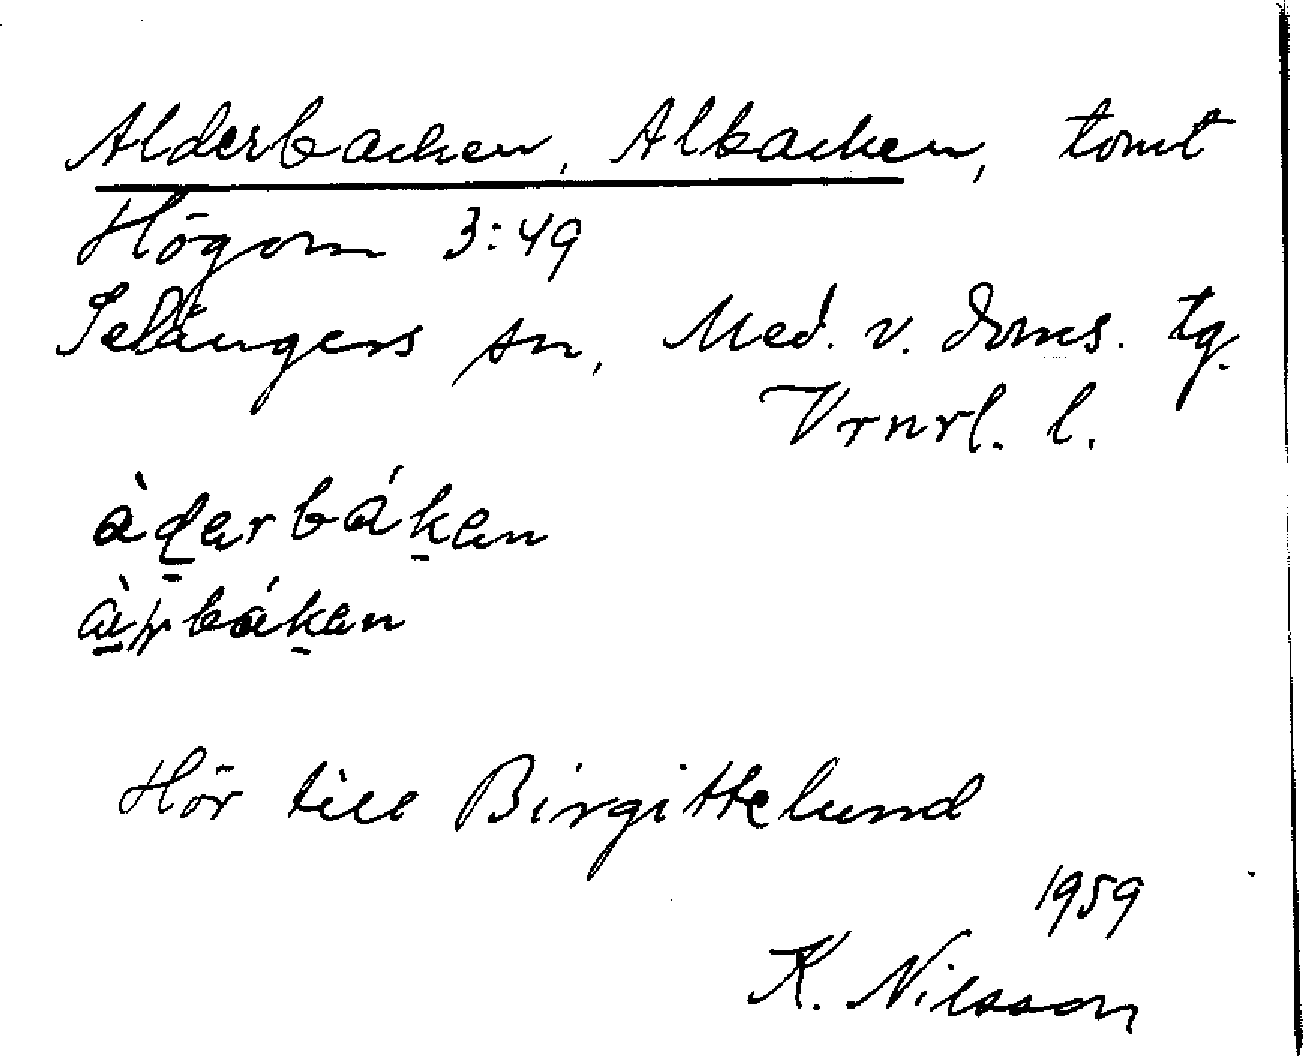 Alderbacken, Albacken, tomt
Högom 3:49
Selångers sn, Med. v. doms. tg.
Vrnrl. l.
àḏerbáḵen
báḵen
Hör till Birgittelund
1959
K. Nilsson